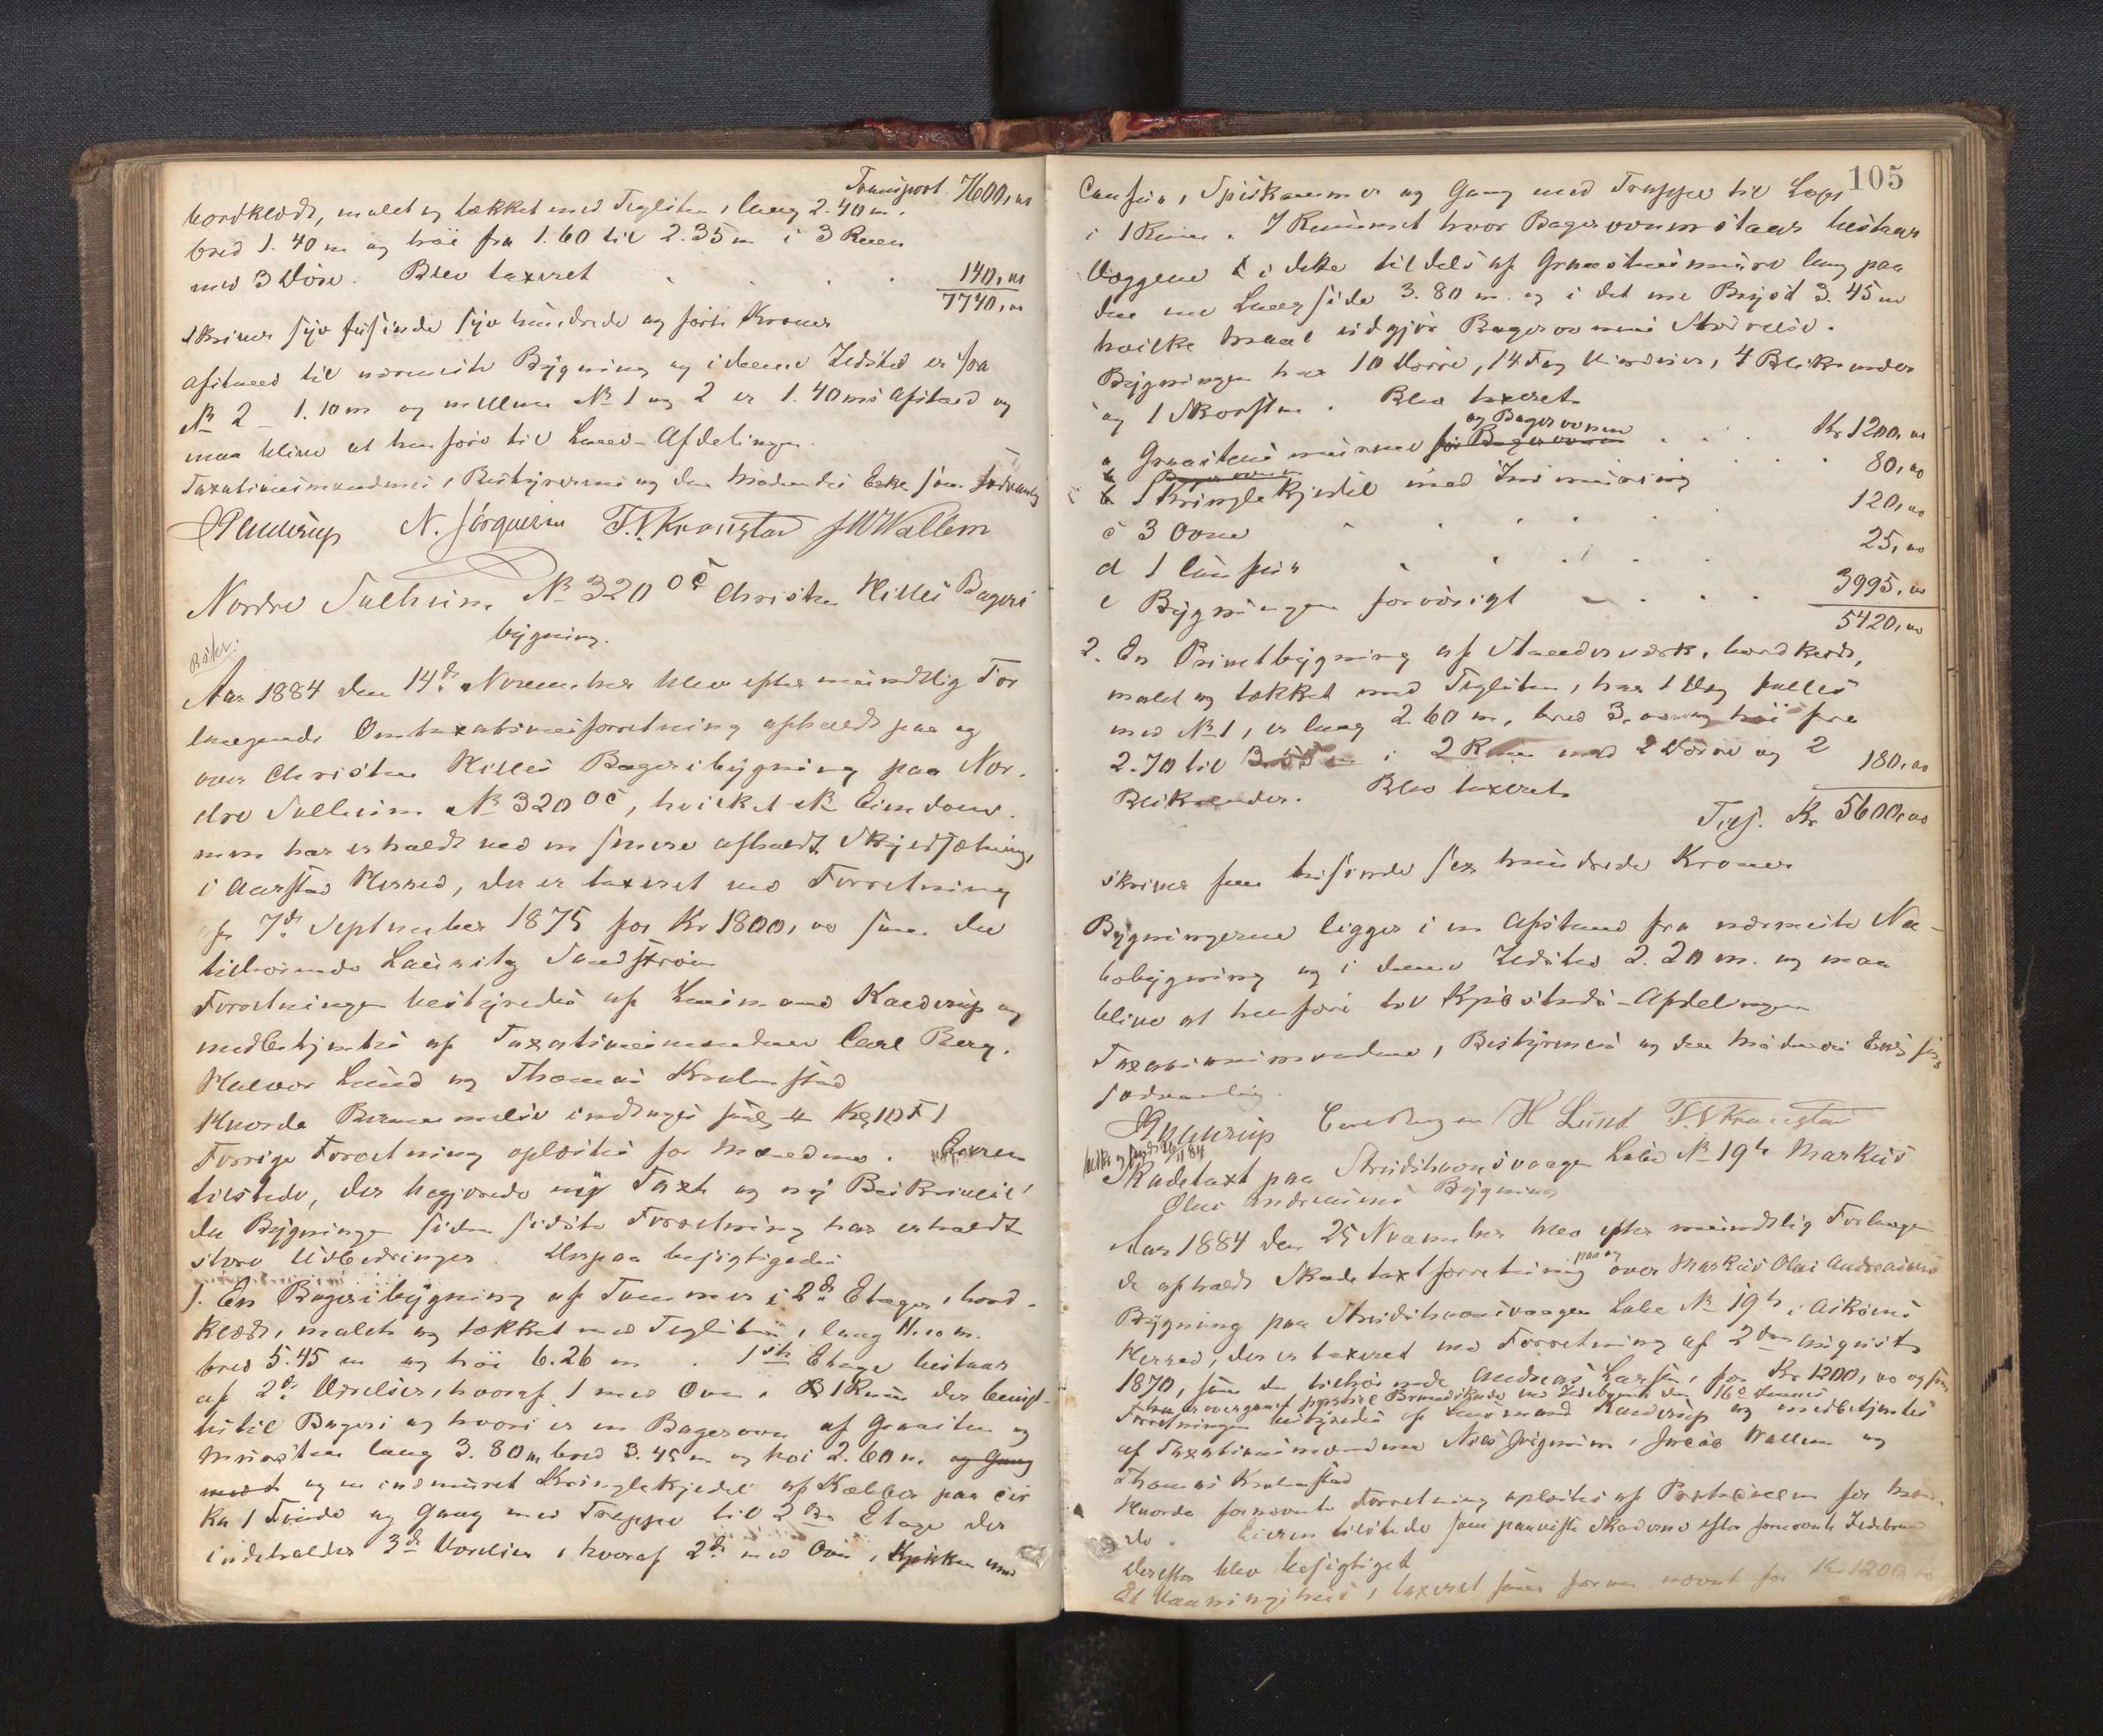 Transport 7600,00
bordklædt, malet og tækket med Teglsten, lang 2.40 m.
bred 1.40 m og höi fra 1.60 til 2.35 m i 3 Rum
med 3 Döre. Blev taxeret 140,00
7740,00
skriver syv tusinde syv hundrede og förti Kroner
Afstand til nærmeste Bygning og i denne Ildsted er fra
№ 2 1.10 m og mellem № 1 og 2 er 1.40 ms Afstand og
maa blive at henföre til Land-Afdelingen.
Taxationsmændenes, Bestyrerens og den mödendes Eeke som sedvanlig
N. Jörgensen T. N. Kronstad J W Wallem
Nordre Solheim № 320 oc Christen Hilles Bageri
bygning.
Aar 1884 den 14de November blev efter mundtlig For
langende Omtaxationsforretning afholdt paa og
over Christen Hilles Bageribygning paa Nor-
dre Solheim № 320 oc, hvilket № Eiendom-
men har erholdt ved en senere afholdt Skyldsætning,
i Aarstad Herred, der er taxeret ved Forretning
af 7de September 1875 for Kr 1800,00 som da
tilhörende Lauritz Sundström
Forretningen bestyredes af Lensmand Kaedrup og
medbetjentes af Taxationsmændene Carl Berg,
Halvor Lund og Thomas Kronstad
Hvorda
Forrige Forretning oplæstes for Mændene. Eieren
tilstede, der begjærede ny Taxt og ny Beskrivelse
da Bygningen siden sidste Forretning har erholdt
store Udbedringer. Derpaa besigtigedes
1. En Bageribygning af Tømmer i 2de Etager, bord-
klædt, malet og tækket med Teglsten, lang 11.10 m.
bred 5.45 m og höi 6.26 m. 1ste Etage bestaar
af 2de Værelser, hvoraf 1 med Ovn, 1 Rum der benyt-
tes til Bageri og hvori er en Bagerovn af Graasten og
Mursten lang 3.80 m bred 3.45 m og höi 2.60 m. og Gang
med og en indmuret Kringlekjedel af Kobber paa cir
ka 1 Tönde og Gang med Trappe til 2den Etage der
indeholder 3de Værelser, hvoraf 2de med Ovn, Kjökken med
105
Comfur, Spiskammer og Gang med Trappe til Loft
i 1 Rum. I Rummet hvor Bagerovnen staar bestaar
Væggene i dette tildels af Graastensmure lang paa
den ene Langside 3.80 m. og i det ene Bryst 3.45 m
hvilke Maal udgjör Bagerovnens Störrelse.
Bygningen har 10 Dörre, 14 Fag Vinduer, 4 Blikrender
og 1 Skorsten. Blev taxeret
og Bagerovnen
a Graastensmurene for Bagerovnen Kr 1200,00
Bagerovnen
b 1 Kringlekjedel med Indmuring 80,00
c 3 Ovne 120,00
d 1 Comfur 25,00
e Bygningen forövrigt 3995,00
5420,00
2. En Privetbygning af Standerværk, bordklædt,
malet og tækket med Teglsten, har 1 Væg fælles
med № 1, er lang 2.60 m, bred 3.00 m og höi fra
2.70 til 3.55 m i 2 Rum med 2 Dörre og 2
Blikrender. Blev taxeret 180,00
Tils. Kr 5600,00
skriver fem tusinde sex hundrede Kroner
Bygningerne ligger i en Afstand fra nærmeste Na-
bobygning og i denne Ildsted 2.20 m. og maa
blive at henföre til Kjöbstads-Afdelingen
Taxationsmændenes, Bestyrerens og den mödendes Eeke som
sedvanlig.
Carl Bergsen H Lund T. N Kronstad
Skadetaxt paa Strudshavnsvaagen Löbe № 19 b Markus
Olai Andreasens Bygning
Aar 1884 den 25 November blev efter mundtlig Forlangen
de afholdt Skadetaxtforretning paa og over Markus Olai Andreasens
Bygning paa Strudshavnsvaagen Löbe № 19 b, i Askøens
Herred, der er taxeret ved Forretning af 2den August
1870, som da tilhörende Andreas Larsen, for Kr 1200,00 og som
Forretningen bestyredes af Lensmand Kaedrup og medbetjentes
af Taxationsmændene Niels Jörgensen, Wallem og
Thomas Kronstad
Hvorda fornævnte Forretning oplæstes af Protocollen for Mæn-
de. Eieren tilstede som paaviste Skaderne efter fornævnte Ildebrand
Derefter blev besigtiget
Et Vaaningshus, taxeret som foran nævnt for Kr 1200,00